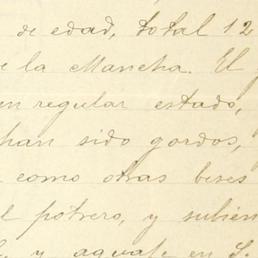 de edad, total 12
de la Mancha. El
en regular estado,
han sido gordos,
como otras veces
el potrero, y subien
y aguase en S.